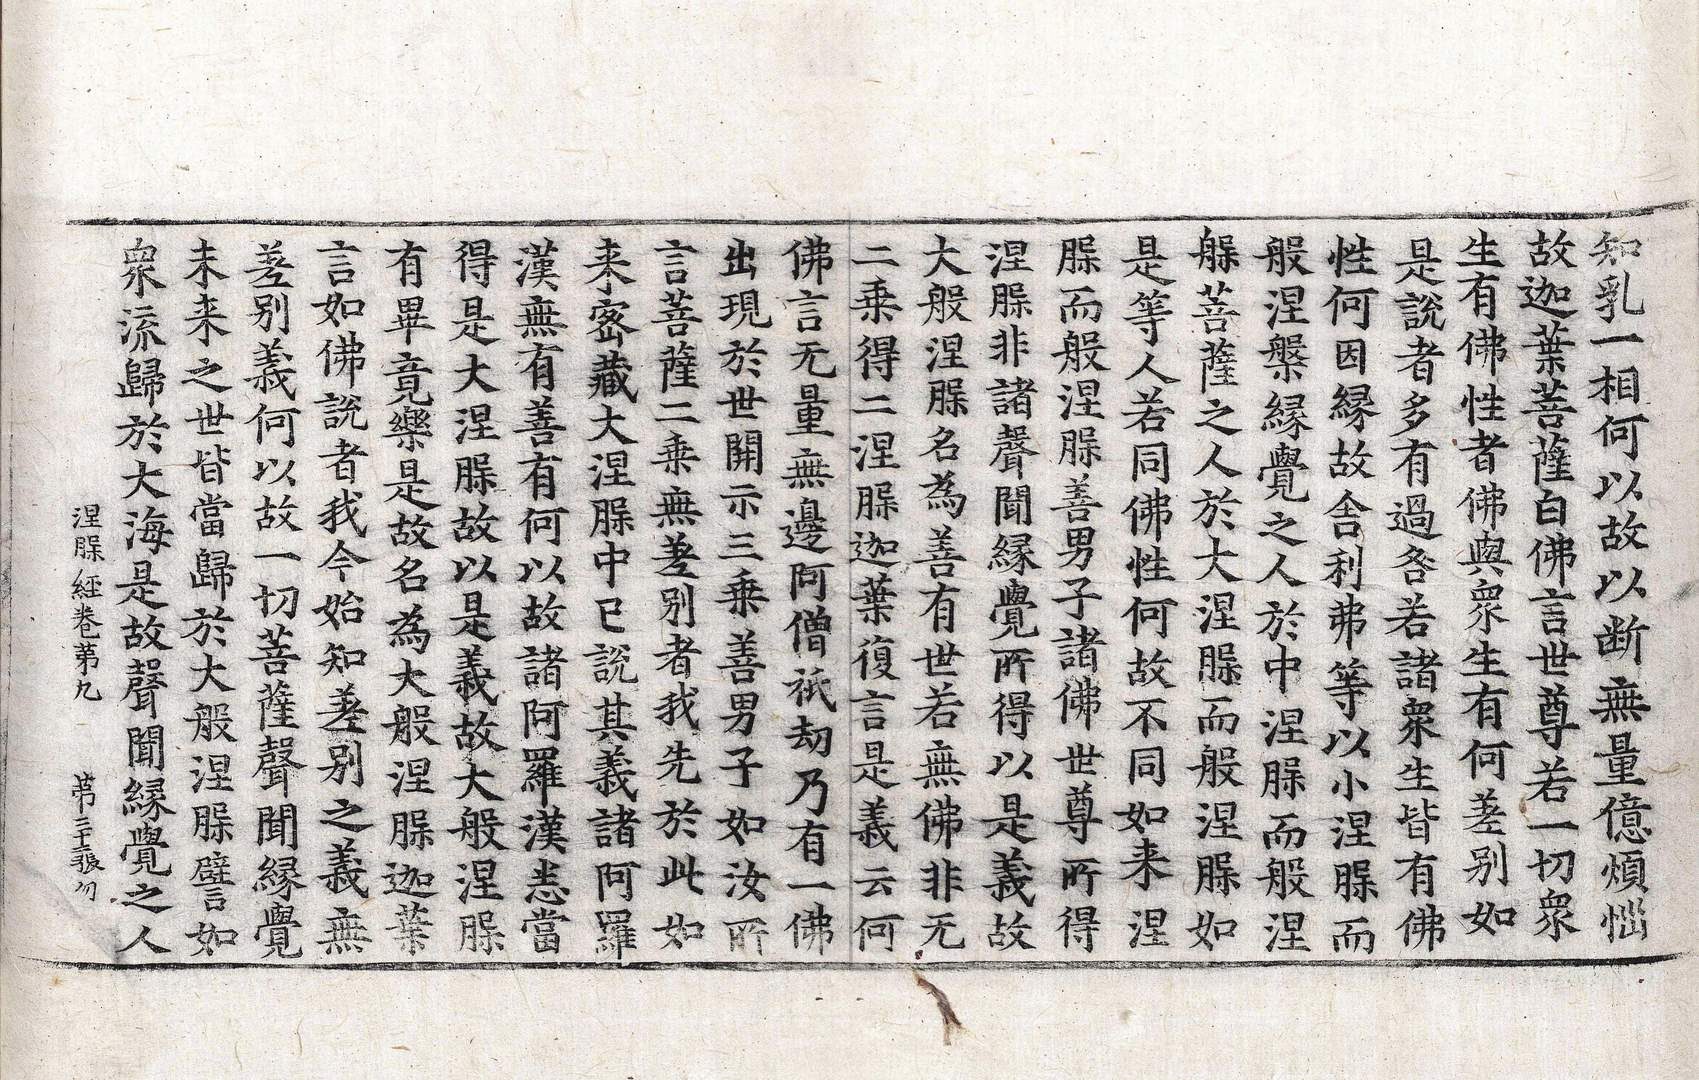 知乳一相何以故以断無量億煩惱
故迦葉菩薩白佛言世尊若一切衆
生有佛性者佛與衆生有何差别如
是說者多有過咎若諸衆生皆有佛
性何因縁故舍利弗等以小涅𦙝而
般涅槃縁覺之人於中涅𦙝而般涅
𦙝菩薩之人於大涅𦙝而般涅𦙝如
是等人若同佛性何故不同如来涅
𦙝而般涅𦙝善男子諸佛世尊所得
涅𦙝非諸聲聞縁覺所得以是義故
大般涅𦙝名為善有世若無佛非无
二乗得二涅𦙝迦葉復言是義云何
佛言无量無邊阿僧祇劫乃有一佛
出現於世開示三乗善男子如汝所
言菩薩二乗無差别者我先於此如
来宻藏大涅𦙝中已說其義諸阿羅
漢無有善有何以故諸阿羅漢悉當
得是大涅𦙝故以是義故大般涅𦙝
有畢竟樂是故名為大般涅𦙝迦葉
言如佛說者我今始知差别之義無
差别義何以故一切菩薩聲聞縁覺
未来之世皆當歸於大般涅𦙝譬如
衆流歸於大海是故聲聞縁覺之人
涅𦙝經卷苐九 苐二十二張 勿